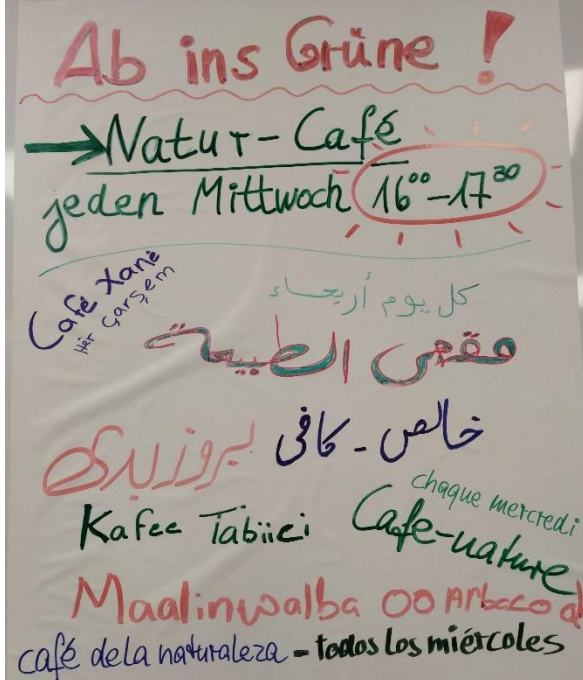 Ab ins Grüne!
→ Natur-Café
jeden Mittwoch 16⁰⁰-17³⁰
Café Xanê
Hêr Çarşem
كل يوم أربعاء
مقهى الطبيعة
خالص - كافى
Kafee Tabiici
chaque mercredi
Cafe-nature
Maalinwalba oo Arbaco
café dela naturaleza - todos los miércoles